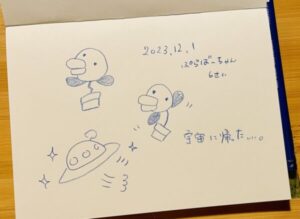 2023.12.1
ぷらばーちゃん
6さい
宇宙に帰たい。